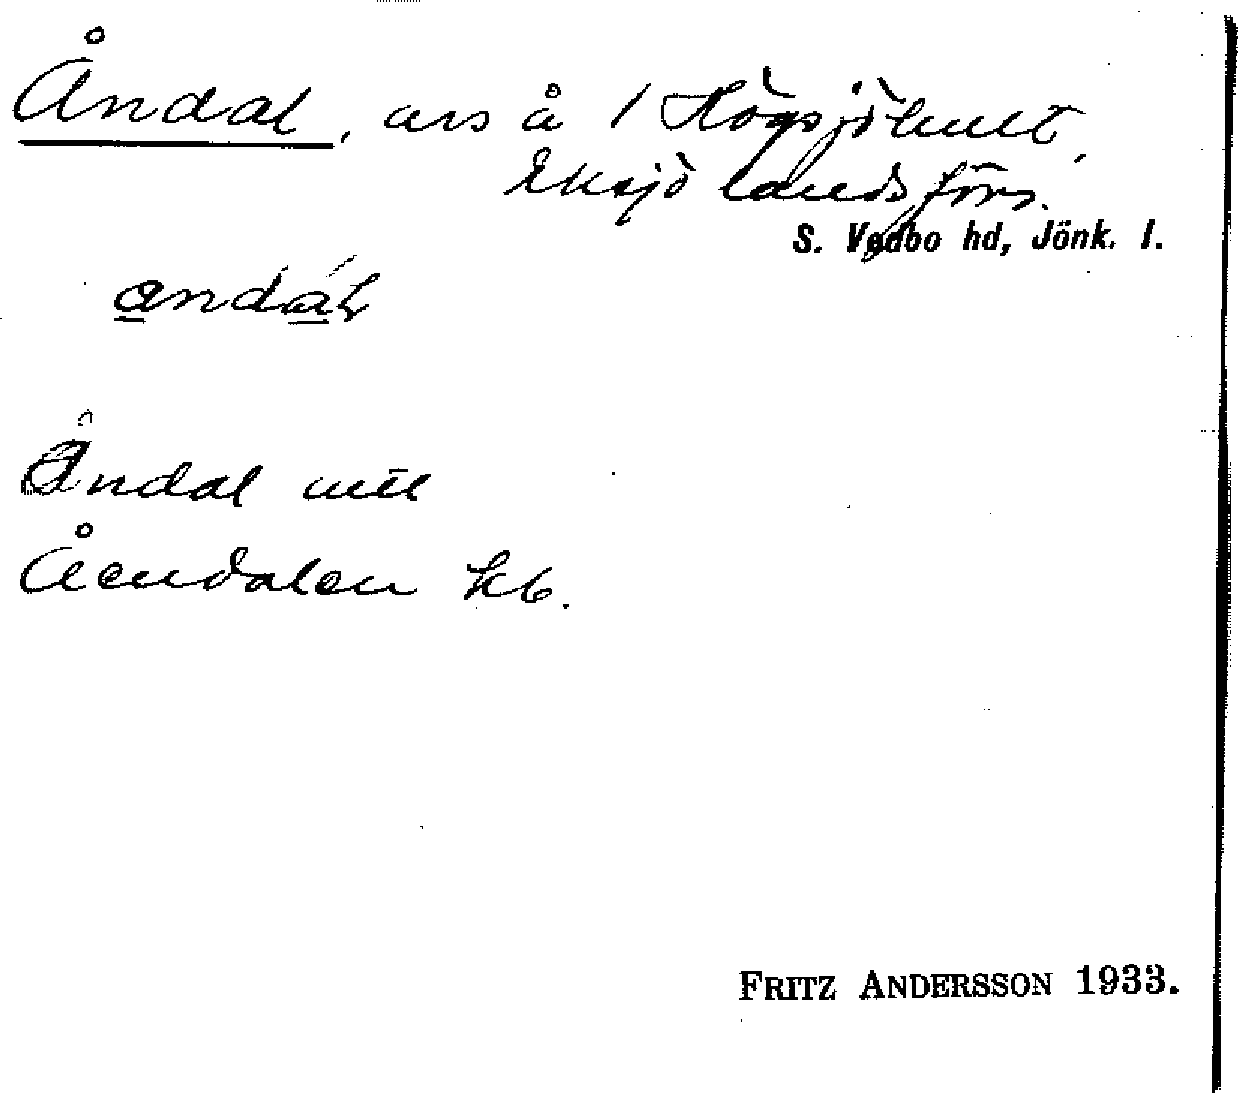 Åndal, avs å 1 Högsjöhult,
Eksjö landsförs.
S. Vedbo hd, Jönk. l.
andál
Åndal
Åendalen kb.
FRITZ ANDERSSON 1933.